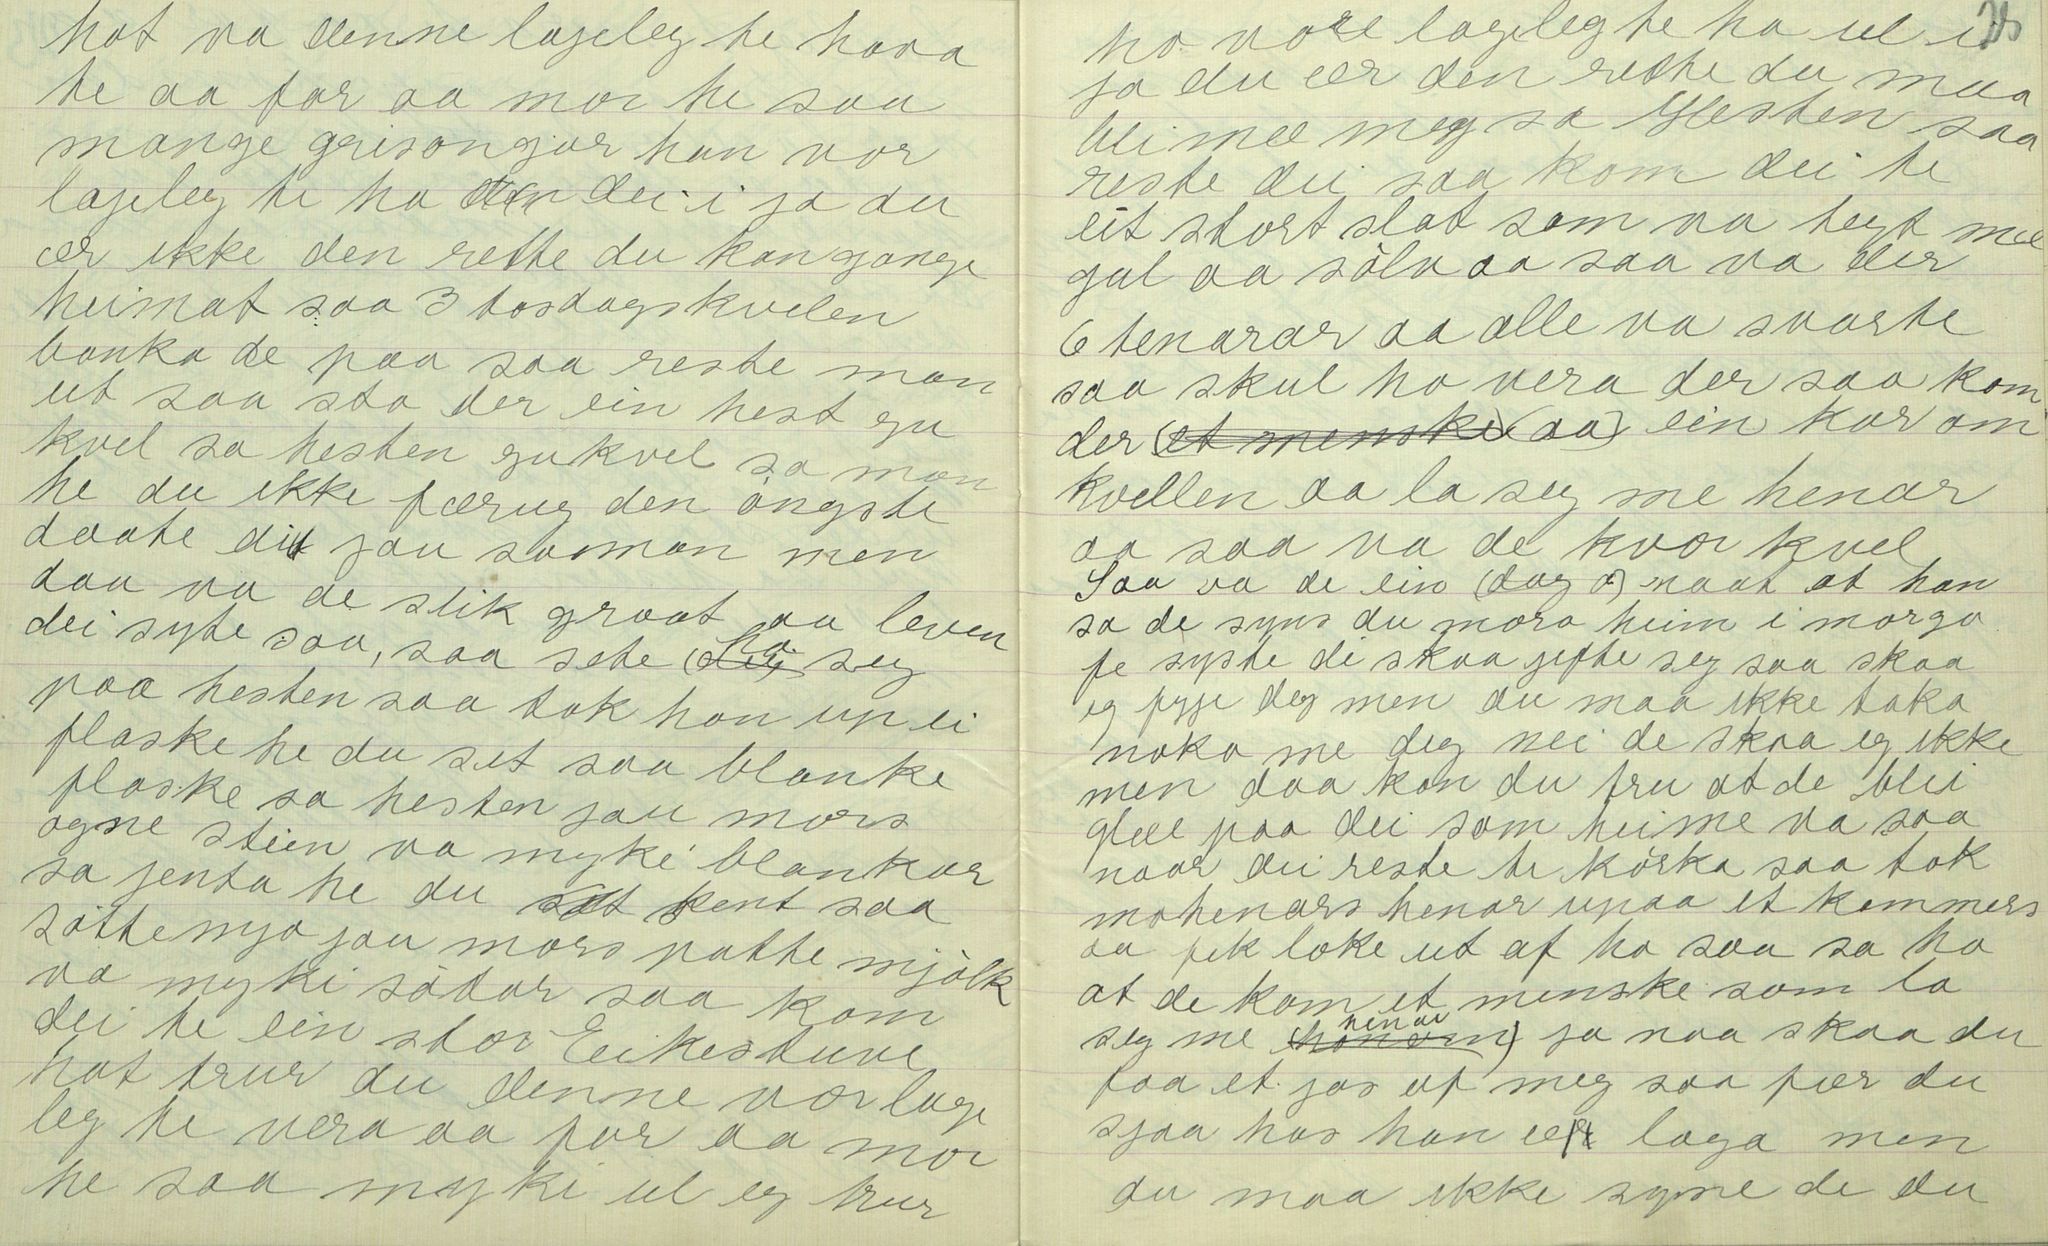 hot va denne lageleg te hava
te aa far aa mor he saa
mange grisongjar han vor
lageleg te ha den dei i ja du
ær ikke den rette du kan gange
heimat saa 3 tosdagskvelen
banka de paa saa reste man
ut saa sto der ein hest gu
kvel sa hesten gukvel sa man
he du ikke færug den öngste
daate dit jau saman men
daa va de slik graat aa leven
dei syte saa, saa sete (dei) ho seg
paa hesten saa tok han up ei
flaske he du set saa blanke
flaske sa hesten jau mors
ogne stein va myki blankar
sa jenta he du set kent saa
sötte mjo jau mors patte mjölk
va myki södar saa kom
dei te ein stor Eikestuve
hot trur du denne vor lage
leg te vera aa far aa mor
he saa myki ul eg trur
25
ho vore lageleg te ha ul i
ja du ær den rette du maa
bli mæ meg sa Hesten saa
reste dei saa kom dei te
eit stort slot som va tegt mæ
gul aa sölv aa saa va der
6 tenarar aa alle va svarte
saa skul ho vera der saa kom
der (et menske) (aa) ein kar om
kvellen aa la seg me henar
aa saa va de kvor kvel
Saa va de ein (dag a) naat at han
sa de syns du mora heim i morgo
fe syste di skaa gifte seg saa skaa
eg fygje deg men du maa ikke taka
noko me deg nei de skaa eg ikke
men daa kan du tru at de blei
glæe paa dei som heime va saa
naar dei reste te körka saa tok
mohenars henar upaa et kammers
aa fek loke ut af ho saa sa ho
at de kom et menske som la
seg me (honom) henar ja naa skaa du
faa et jos af meg saa fær du
sjaa hos han ær laga men
du maa ikke syne de du